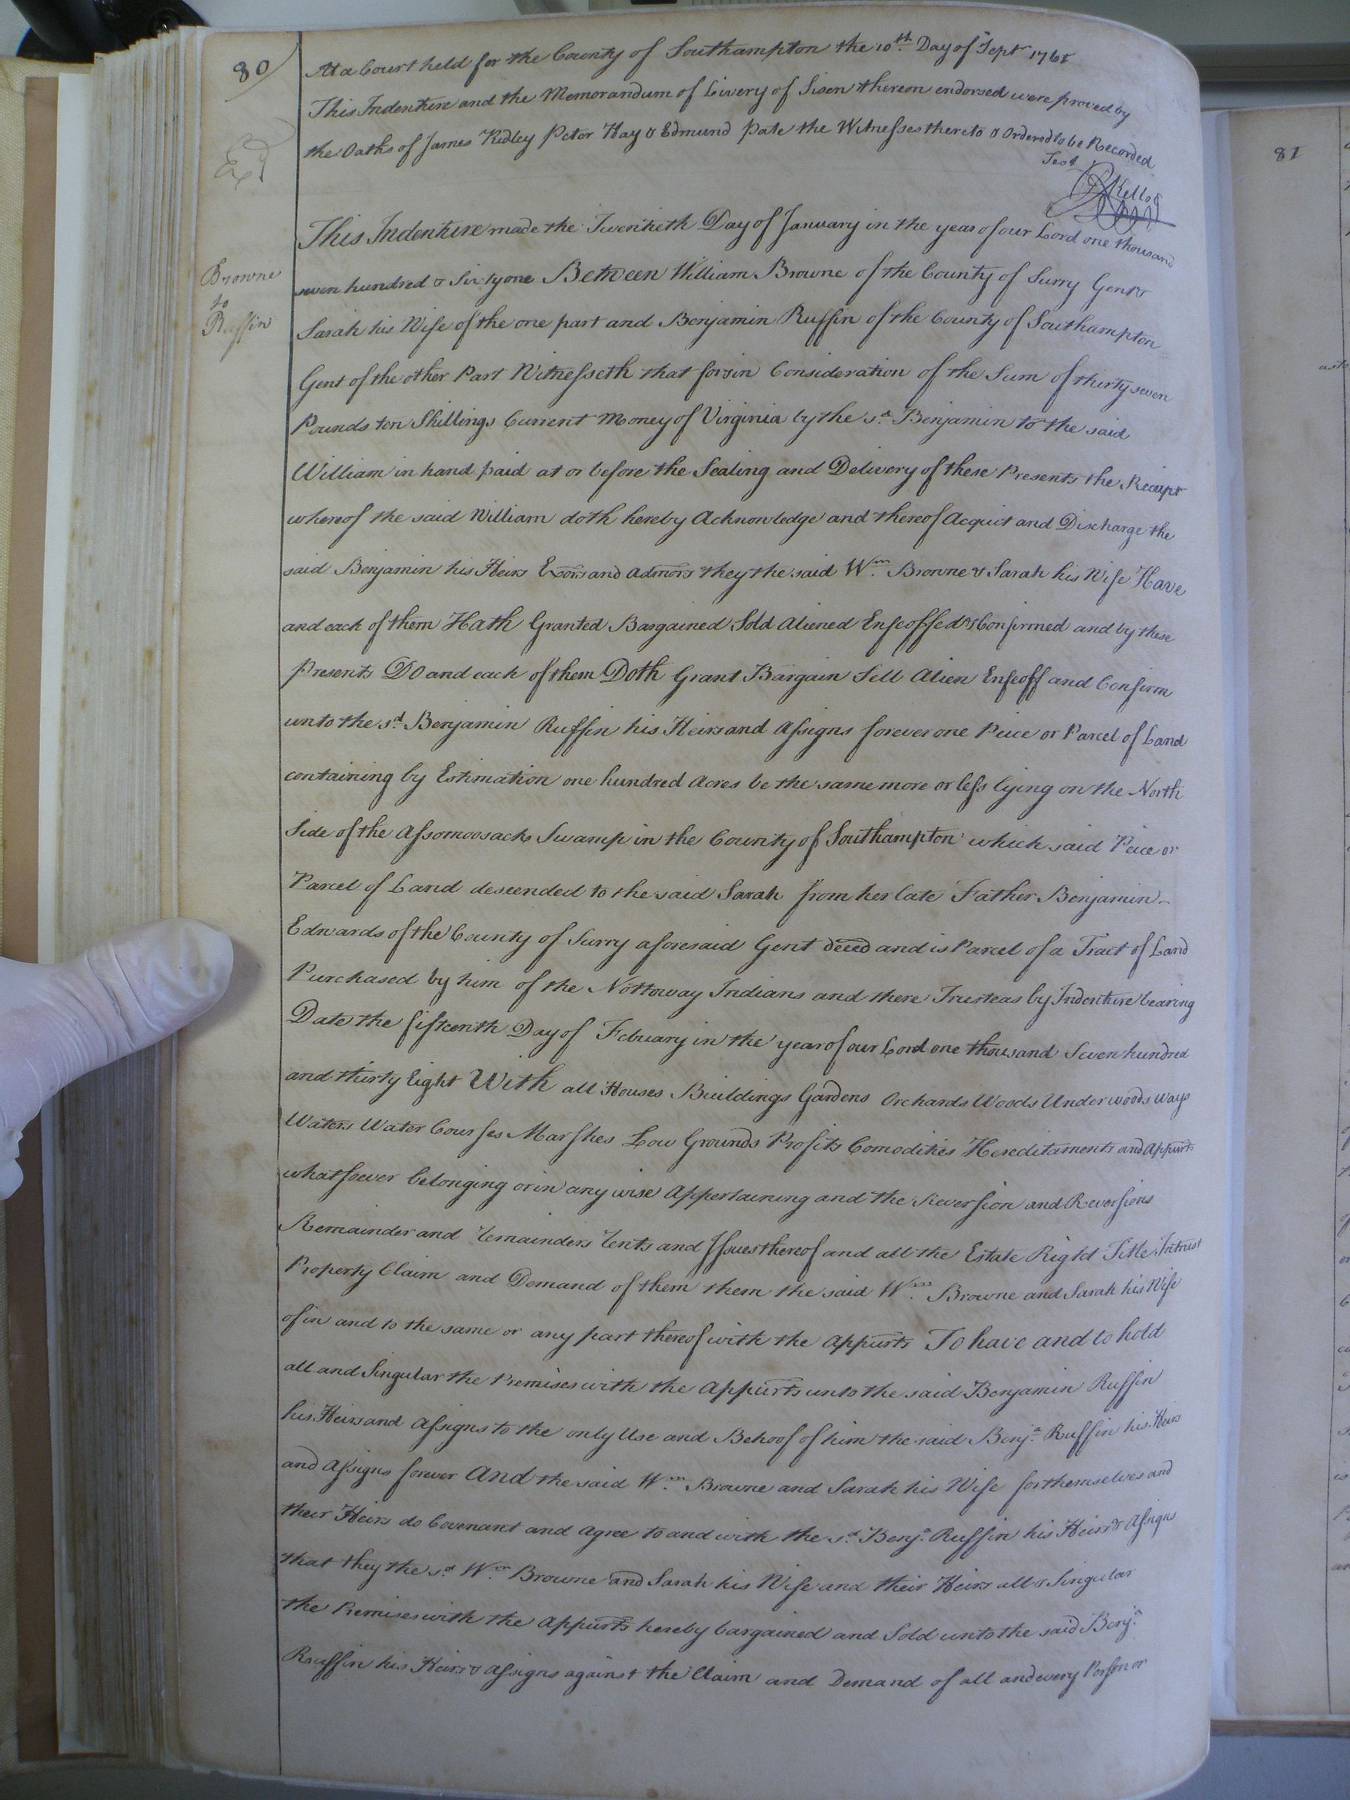 80
At a Court held for the County of Southampton the 10th Day of Sept 1765
This Indenture and the Memorandum of Livery of Sisen thereon endorsed were proved by
the Oaths of James Ridley Peter Hay & Edmund Pate the Witnesses thereto & Ordered to be Recorded
Test
Kello
Exd
This Indenture made the Twentieth Day of January in the year of our Lord one thousand
Browne
to
Ruffin
seven hundred & Sixty one Between William Browne of the County of Surry Gent &
Sarah his Wife of the one part and Benjamin Ruffin of the County of Southampton
Gent of the other Part Witnesseth that for & in Consideration of the Sum of thirty seven
Pounds ten Shillings Current Money of Virginia by the sd. Benjamin to the said
William in hand paid at or before the Sealing and Delivery of these Presents the Receipt
whereof the said William doth hereby Acknowledge and thereof Acquit and Discharge the
said Benjamin his Heirs Exors and Admors they the said Wm. Browne & Sarah his Wife Have
and each of them Hath Granted Bargained Sold Aliened Enfeoffed & Confirmed and by these
Presents DO and each of them Doth Grant Bargain Sell Alien Enfeoff and Confirm
unto the sd. Benjamin Ruffin his Heirs and Assigns forever one Peice or Parcel of Land
containing by Estimation one hundred Acres be the same more or less lying on the North
Side of the Assomoosack Swamp in the County of Southampton which said Peice or
Parcel of Land descended to the said Sarah from her late Father Benjamin
Edwards of the County of Surry aforesaid Gent deced and is Parcel of a Tract of Land
Purchased by him of the Nottoway Indians and there Trusteas by Indenture bearing
Date the fifteenth Day of Febuary in the year of our Lord one thousand Seven hundred
and thirty Eight With all Houses Buildings Gardens Orchards Woods Underwoods Ways
Waters Water Courses Marshes Low Grounds Profits Comodities Hereditaments and Appurts
whatsoever belonging or in any wise Appertaining and the Reversion and Reversions
Remainder and Remainders Rents and Issues thereof and all the Estate Right Title Intrust
Property Claim and Demand of them them the said Wm. Browne and Sarah his Wife
of in and to the same or any part thereof with the Appurts To have and to hold
all and Singular the Premises with the Appurts unto the said Benjamin Ruffin
his Heirs and Assigns to the only Use and Behoof of him the said Benja. Ruffin his Heirs
and Assigns forever And the said Wm. Browne and Sarah his Wife for themselves and
their Heirs do Covenant and Agree to and with the sd. Benja. Ruffin his Heirs & Assigns
that they the sd Wm. Browne and Sarah his Wife and their Heirs all & Singular
the Premises with the Appurts hereby bargained and Sold unto the said Benja.
Ruffin his Heirs & Assigns against the Claim and Demand of all and every Person or
81